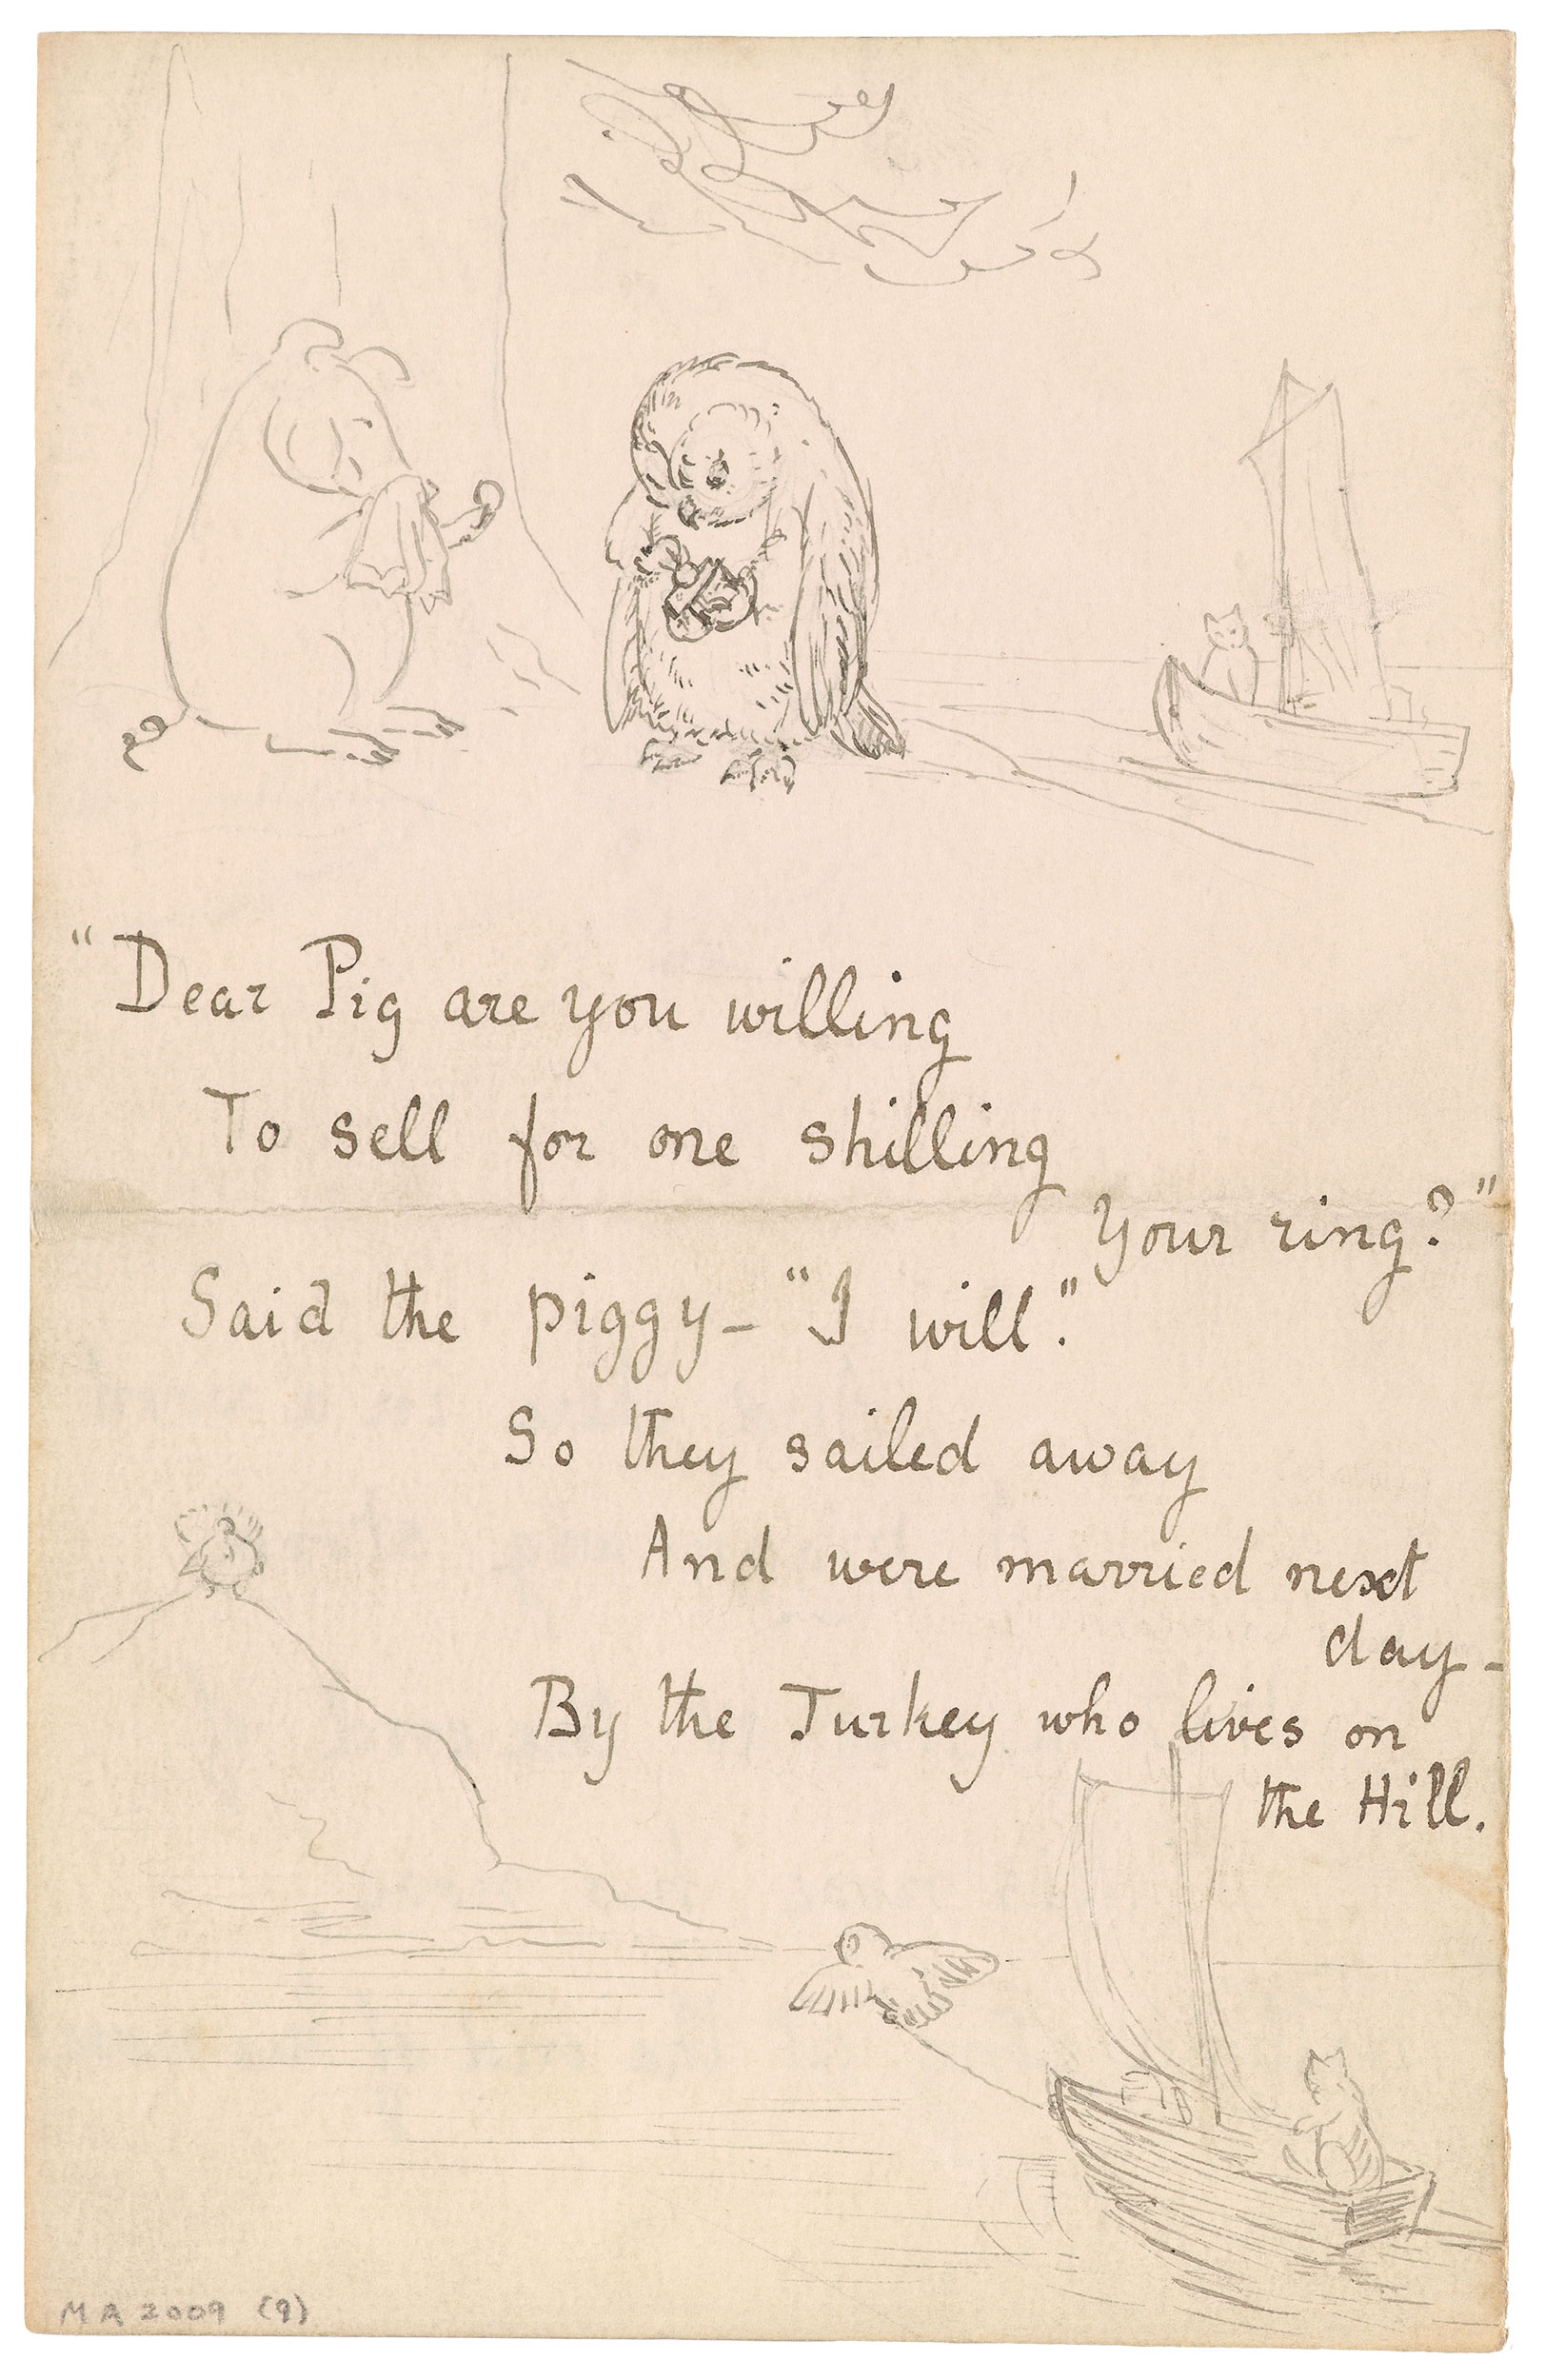 "Dear Pig are you willing
To sell for one shilling
Your ring?"
Said the piggy - "I will."
So they sailed away
And were married next
day -
By the Turkey who lives on
the Hill.
MA 2009 (9)